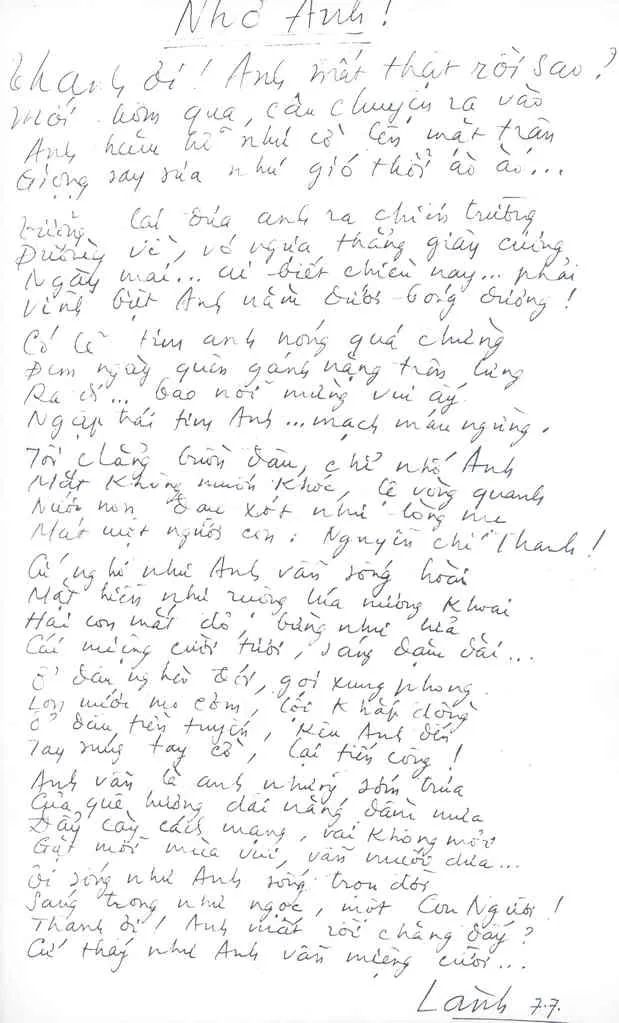 Nhớ Anh!
Thanh ơi! Anh mất thật rồi sao?
Mới hôm qua, câu chuyện ra vào
Anh hăm hở như cờ lên mặt trận
Giọng say sưa như gió thổi ào ào...
Tưởng lại đưa anh ra chiến trường
Đường về, vó ngựa thẳng giây cương
Ngày mai... ai biết chiều nay... phải
Vĩnh biệt Anh nằm dưới bóng dương!
Có lẽ tim anh nóng quá chừng
Đêm ngày quên gánh nặng trên lưng
Ra đi... bao nỗi mừng vui ấy
Ngập trái tim Anh... mạch máu ngừng.
Tôi chẳng buồn đâu, chỉ nhớ Anh
Mắt không muốn khóc, lệ vòng quanh
Nước non đau xót như lòng mẹ
Mất một người con: Nguyễn Chí Thanh!
Cứ nghĩ như Anh vẫn sống hoài
Mặt hiền như ruộng lúa nương khoai
Hai con mắt đỏ, bừng như lửa
Cái miệng cười tươi, sang đậm dài...
Ở đâu nghèo đói, gọi xung phong
Lon muối mo cơm, lội khắp đồng
Ở đâu tiền tuyến, kêu Anh đến
Tay súng tay cờ, lại tiến công!
Anh vẫn là anh những sớm trưa
Của quê hương dãi nắng dầm mưa
Đẩy cày cách mạng, vai không mỏi
Gặt mỗi mùa vui, vẫn muối dưa...
Ôi sống như Anh sống trọn đời
Sáng trong như ngọc, một Con Người!
Thanh ơi! Anh mất rồi chăng đấy?
Cứ thấy như Anh vẫn miệng cười...
Lành 7.7.